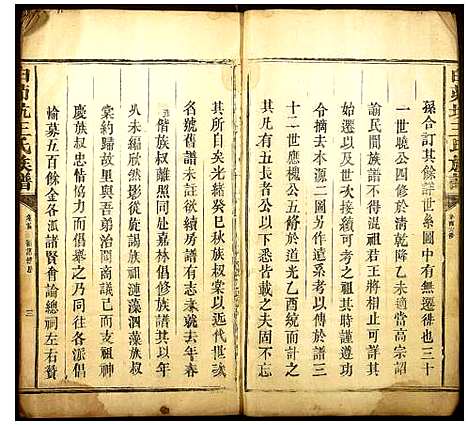 孫合訂其餘詳世系圖中有無遷徙也三十
一世曉公四修於清乾隆乙未適當高宗詔
諭民間族譜不得混祖君王將相可詳其
始遷以及世次可考者以其時謹遵功
令摘去水源二圖另作遠系考以傳於譜三
十二世應槐公五修於道光乙酉統而計之
凡有五長者已以下悉皆載之夫固不忘
其所自矣光緒癸巳秋族叔棠以近代世次
名號舊譜未註欲續房譜有志未就去年春
五偕族叔離照同處嘉林倡修族譜其以年
久未編欣然影從旋謁族祖漣藻泗藻族叔
棠約歸故里與吾弟治閣商議已而支祖神
慶族叔忠情協力而倡舉之乃同往各派倡
輸募五百餘金各派諸賢會論總祠左右贊
白茆坑王氏族譜
三